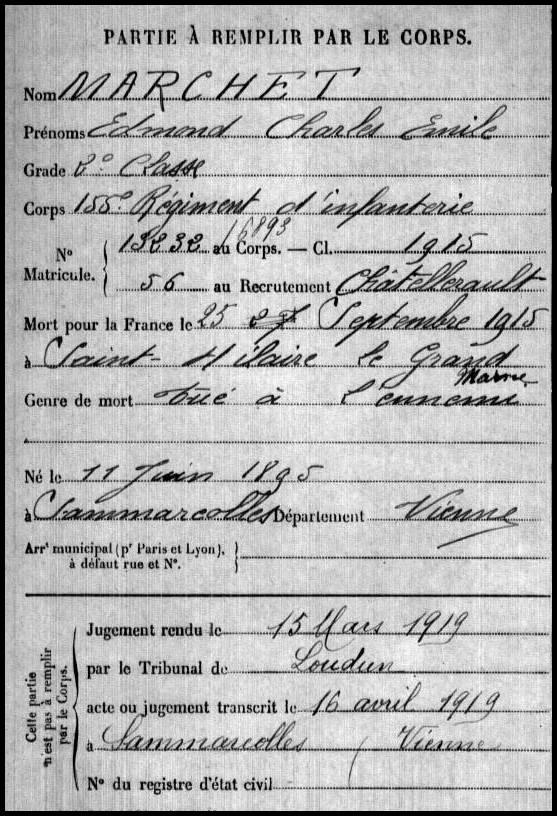 PARTIE À REMPLIR PAR LE CORPS.
Nom MARCHET
Prénoms Edmond Charles Emile
Grade 2e Classe
Corps 155e Régiment d'infanterie
16893
13232 au Corps. — Cl. 1915
No Matricule.
56 au Recrutement Châtellerault
Mort pour la France le 25 27 Septembre 1915
à Saint-Hilaire le Grand
Marne
Genre de mort tué à l'ennemi
Né le 11 Juin 1895
à Sammarcolles Département Vienne
Arrt municipal (pr Paris et Lyon),
à défaut rue et No.
Cette partie n'est pas à remplir par le Corps.
Jugement rendu le 15 Mars 1919
par le Tribunal de Loudun
acte ou jugement transcrit le 16 avril 1919
à Sammarcolles (Vienne
No du registre d'état civil